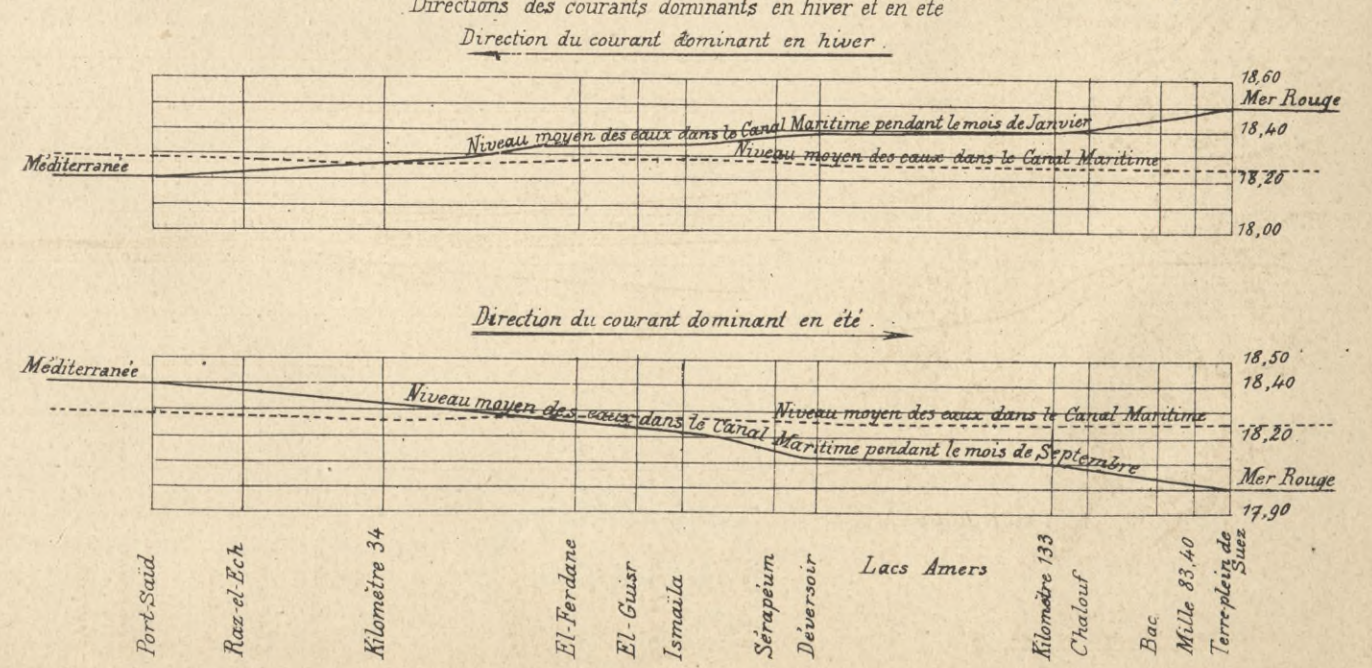 Directions des courants dominants en hiver et en été
Direction du courant dominant en hiver.
18,60
Mer Rouge
18,40
Niveau moyen des eaux dans le Canal Maritime pendant le mois de Janvier
Niveau moyen des eaux dans le Canal Maritime
Méditerranée
18,20
18,00
Direction du courant dominant en été.
18,50
Méditerranée
18,40
Niveau moyen des eaux dans le Canal Maritime pendant le mois de Septembre
Niveau moyen des eaux dans le Canal Maritime
18,20
Mer Rouge
17,90
Port-Saïd
Raz-el-Ech
Kilomètre 34
El-Ferdane
El-Guisr
Ismaïla
Sérapéum
Déversoir
Lacs Amers
Kilomètre 133
Chalouf
Bac
Mille 83,40
Terre-plein de
Suez